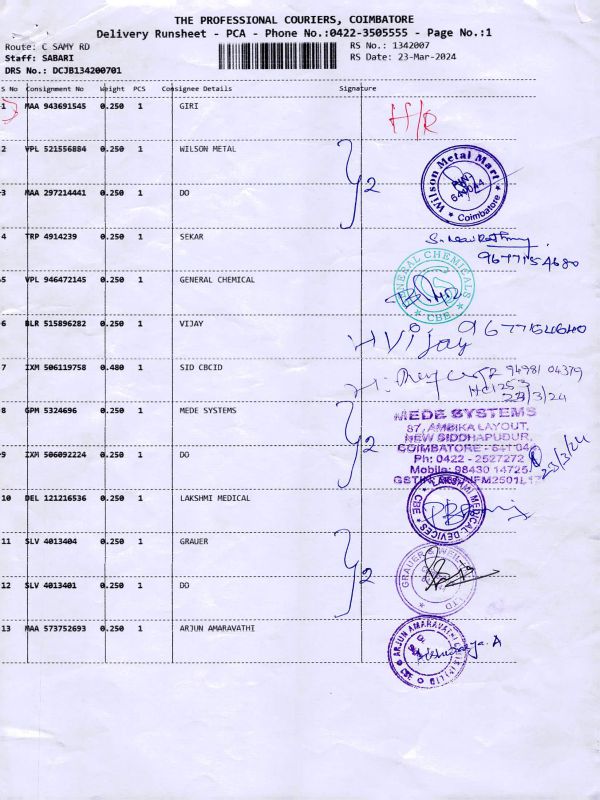 THE PROFESSIONAL COURIERS, COIMBATORE
Delivery Runsheet - PCA - Phone No.:0422-3505555 - Page No.:1
Route: C SAMY RD
Staff: SABARI
DRS No.: DCJB134200701
RS No.: 1342007
RS Date: 23-Mar-2024
S No Consignment No Weight PCS Consignee Details Signature
1 MAA 943691545 0.250 1 GIRI
H/R
2 VPL 521556884 0.250 1 WILSON METAL
Wilson Metal Mart
Coimbatore
3 MAA 297214441 0.250 1 DO
2
4 TRP 4914239 0.250 1 SEKAR
9677154680
5 VPL 946472145 0.250 1 GENERAL CHEMICAL
GENERAL CHEMICALS
CBE
6 BLR 515896282 0.250 1 VIJAY
Vijay
7 IXM 506119758 0.480 1 SIO CBCID
94981 04379
HC1253
23/3/24
8 GPM 5324696 0.250 1 MEDE SYSTEMS
MEDE SYSTEMS
87, AMBIKA LAYOUT,
NEW SIDDHAPUDUR,
COIMBATORE - 641 044
Ph: 0422 - 2527272
Mobile: 98430 14725
23/3/24
9 IXM 506092224 0.250 1 DO
2
10 DEL 121216536 1 LAKSHMI MEDICAL
LAKSHMI MEDICAL DEVICES
CBE
11 SLV 4013404 0.250 1 GRAUER
GRAUER & WEIL LTD
12 SLV 4013401 0.250 1 DO
2
13 MAA 573752693 0.250 1 ARJUN AMARAVATHI
ARJUN AMARAVATHI
CBE